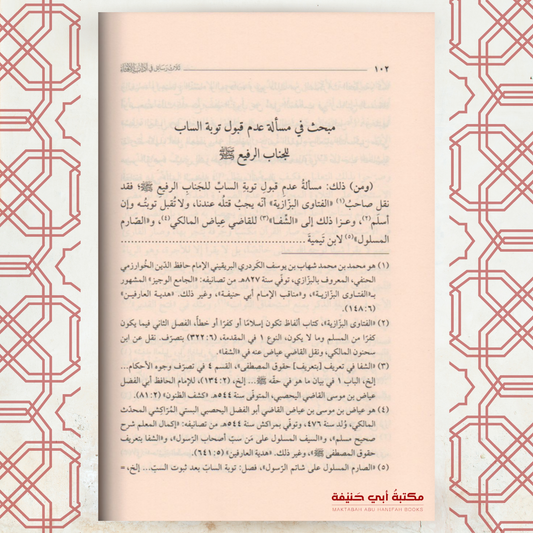 ١٠٢
مبحث في مسألة عدم قبول توبة الساب
للجناب الرفيع ﷺ
(ومن) ذلك: مسألةُ عدم قبولِ توبةِ السابِّ للجَنابِ الرفيعِ ﷺ؛ فقد
نقل صاحبُ(١) «الفتاوى البزّازية» أنّه يجبُ قتلُه عندنا، ولا تُقبل توبتُه وإن
أسلَم(٢)، وعزا ذلك إلى «الشِّفا»(٣) للقاضي عِياض المالكي(٤)، و«الصّارم
المسلول»(٥) لابن تيميةَ
(١) هو محمد بن محمد شهاب بن يوسف الكردري البريقيني الإمام حافظ الدّين الخُوارزمي
الحنفي، المعروف بالبزّازي، توفّي سنة ٨٢٧هـ. من تصانيفه: «الجامع الوجيز» المشهور
بـ«الفتاوى البزّازية»، و«مناقب الإمام أبي حنيفة»، وغير ذلك. «هدية العارفين»
(١٤٨:٦).
(٢) «الفتاوى البزّازية»، كتاب ألفاظ تكون إسلامًا أو كفرًا أو خطأً، الفصل الثاني فيما يكون
كفرًا من المسلم وما لا يكون، النوع ١ في المقدمة، (٣٢٢:٦) بتصرف. نقل عن ابن
سحنون المالكي، ونقل القاضي عياض عنه في «الشفا».
(٣) «الشفا في تعريف [بتعريف] حقوق المصطفى»، القسم ٤ في تصرّف وجوه الأحكام...
إلخ، الباب ١ في بيان ما هو في حقّه ﷺ... إلخ، (١٣٤:٢)، للإمام الحافظ أبي الفضل
عياض بن موسى القاضي اليحصبي، المتوفّى سنة ٥٤٤هـ. «كشف الظنون» (٨١:٢).
(٤) هو عياض بن موسى بن عياض القاضي أبو الفضل اليحصبي البستي المرّاكشي المحدّث
المالكي، وُلد سنة ٤٧٦، وتوفّي بمراكش سنة ٥٤٤هـ. من تصانيفه: «إكمال المعلم شرح
صحيح مسلم»، و«السيف المسلول على مَن سبّ أصحاب الرّسول»، و«الشفا بتعريف
حقوق المصطفى ﷺ»، وغير ذلك. «هدية العارفين» (٦٤١:٥).
(٥) «الصارم المسلول على شاتم الرّسول»، فصل: توبة السابّ بعد ثبوت السبّ... إلخ، =
مكتبة أبي حنيفة
MAKTABAH ABU HANIFAH BOOKS